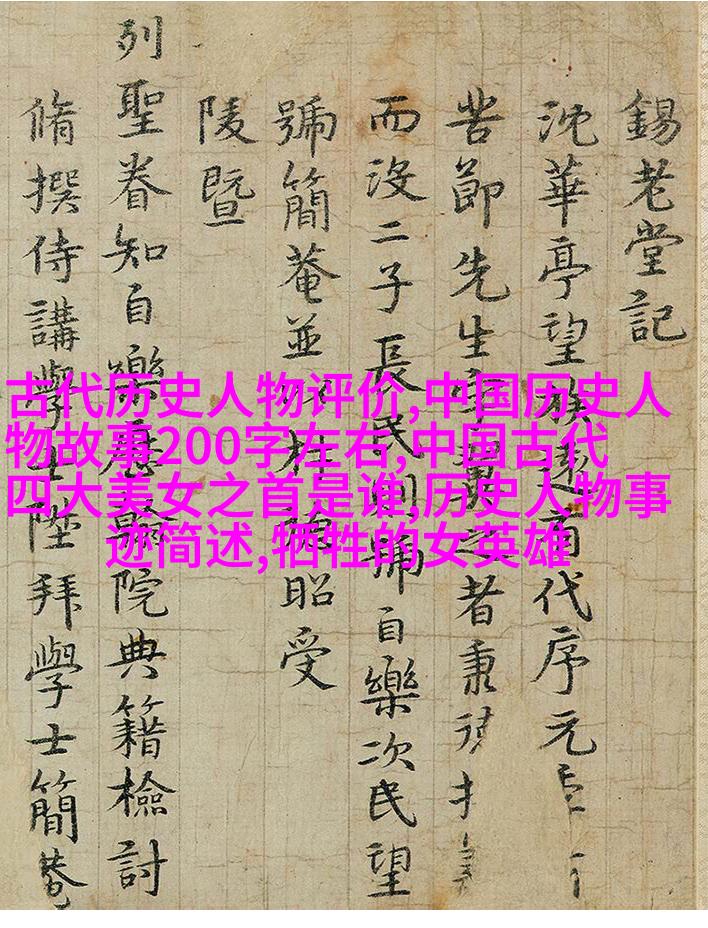 錫老堂記
沈華亭望族遠有代序元
苦節先生之者秉
而沒二子長民則自樂次民望
號簡菴並昭受
陵暨
列聖眷知自樂院典籍檢討
脩撰侍講學士陞拜學士簡菴
古代历史人物评价,中国历史人
物故事200字左右,中国古代
四大美女之首是谁,历史人物事
迹简述,牺牲的女英雄